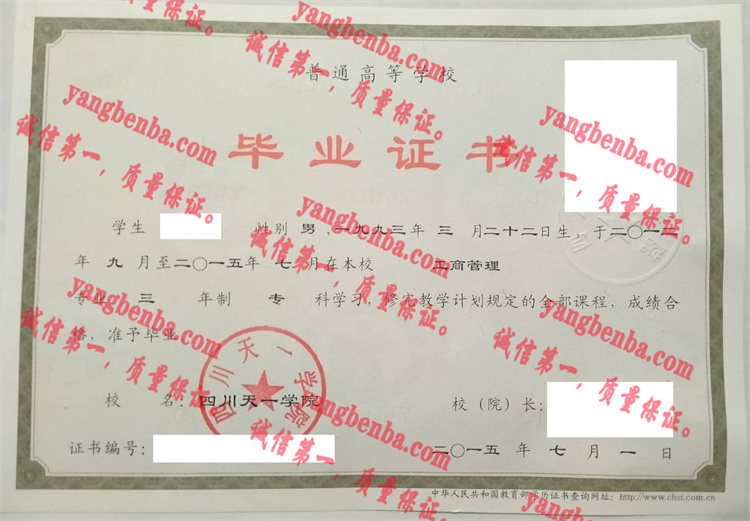 普通高等学校
毕业证书
学生 性别 男 ,一九九三年 三 月二十二日生，于二〇一二
年 九 月至二〇一五年 七 月在本校 工商管理
专业 三 年制 专 科学习，修完教学计划规定的全部课程，成绩合
格，准予毕业
四川天一学院
校 名：四川天一学院 校（院）长：
证书编号： 二〇一五 年 七 月 一 日
中华人民共和国教育部学历证书查询网址：http://www.chsi.com.cn
yangbenba.com
诚信第一，质量保证。
yangbenba.com
诚信第一，质量保证。
yangbenba.com
诚信第一，质量保证。
yangbenba.com
诚信第一，质量保证。
yangbenba.com
诚信第一，质量保证。
yangbenba.com
诚信第一，质量保证。
yangbenba.com
诚信第一，质量保证。
yangbenba.com
诚信第一，质量保证。
yangbenba.com